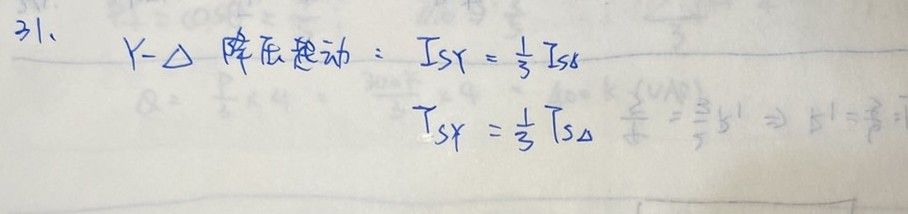 31.
Y-△ 降压起动：I_SY = 1/3 I_S△
T_SY = 1/3 T_S△